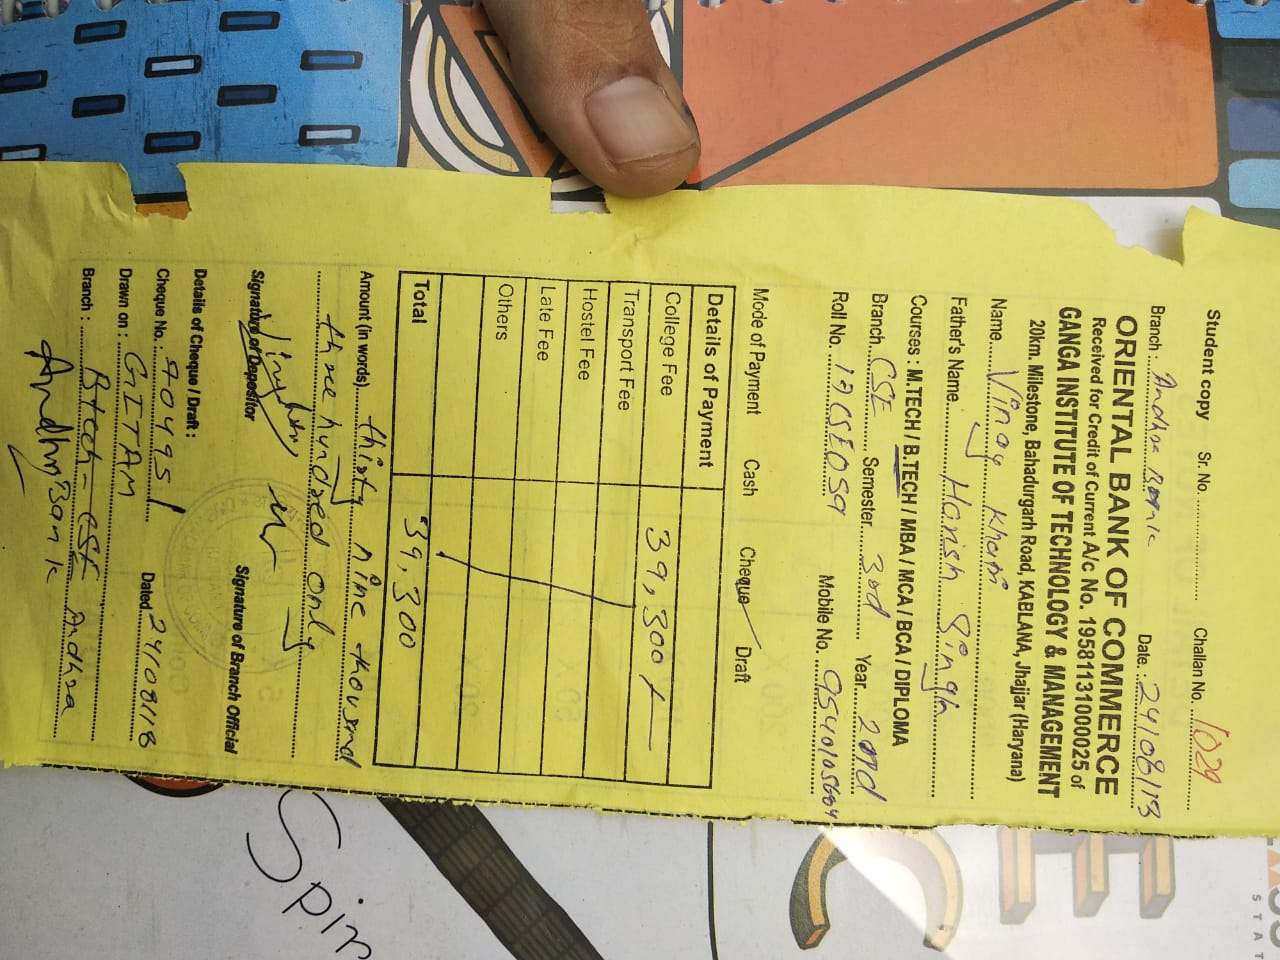 Student copy Sr. No. .............. Challan No. 1029
Branch : Andhra Bank Date. : 24/08/18
ORIENTAL BANK OF COMMERCE
Received for Credit of Current A/c No. 19581131000025 of
GANGA INSTITUTE OF TECHNOLOGY & MANAGEMENT
20km. Milestone, Bahadurgarh Road, KABLANA, Jhajjar (Haryana)
Name.... Vinay
Father's Name.... Harish Singh
Courses : M.TECH / B.TECH / MBA / MCA / BCA / DIPLOMA
Branch.. CSE Semester.. 3rd Year... 2nd
Roll No. .. 17CSE059 Mobile No. ..
Mode of Payment Cash Cheque Draft
Details of Payment
College Fee 39,300/-
Transport Fee
Hostel Fee
Late Fee
Others
Total 39,300
Amount (in words).... thirty nine thousand
three hundred only
Signature of Depositor Signature of Branch Official
Details of Cheque / Draft :
Cheque No. : 570495 Dated. 24/08/18
Drawn on : GITAM
Branch : Btech - CSE Andhra
Andhra Bank
Spin